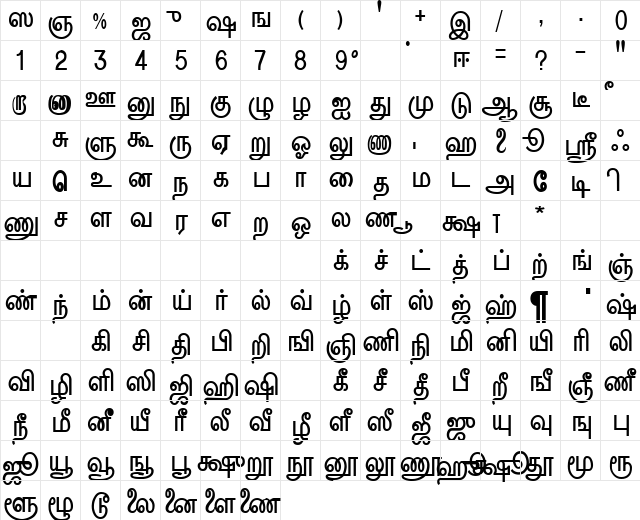 ஸ ஞ % ஜ ு ஷ ங ( ) ' + இ / , . 0
1 2 3 4 5 6 7 8 9 ° ஈ = ? – "
ஊ னு நு கு ழு ழ ஐ து மு டு ஆ சூ டீ ீ
சு ளு கூ ரு ஏ று ஓ லு ண . ஹ ஸ்ரீ ஃ
ய உ ன ந க ப ா த ம ட அ டி ி
ணு ச ள வ ர எ ற ஒ ல ண க்ஷ *
க் ச் ட் த் ப் ற் ங் ஞ்
ண் ந் ம் ன் ய் ர் ல் வ் ழ் ள் ஸ் ஜ் ஹ் ¶ ஷ்
கி சி தி பி றி ஙி ஞி ணி நி மி னி யி ரி லி
வி ழி ளி ஸி ஜி ஹி ஷி கீ சீ தீ பீ றீ ஙீ ஞீ ணீ
நீ மீ னீ யீ ரீ லீ வீ ழீ ளீ ஸீ ஜீ ஜு யு வு ஙு பு
ஜூ யூ வூ ஙூ பூ க்ஷூ றூ நூ னூ லூ ணூ ஹூ க்ஷூ தூ மூ ரூ
ளூ ழூ டூ லை னை ளை ணை